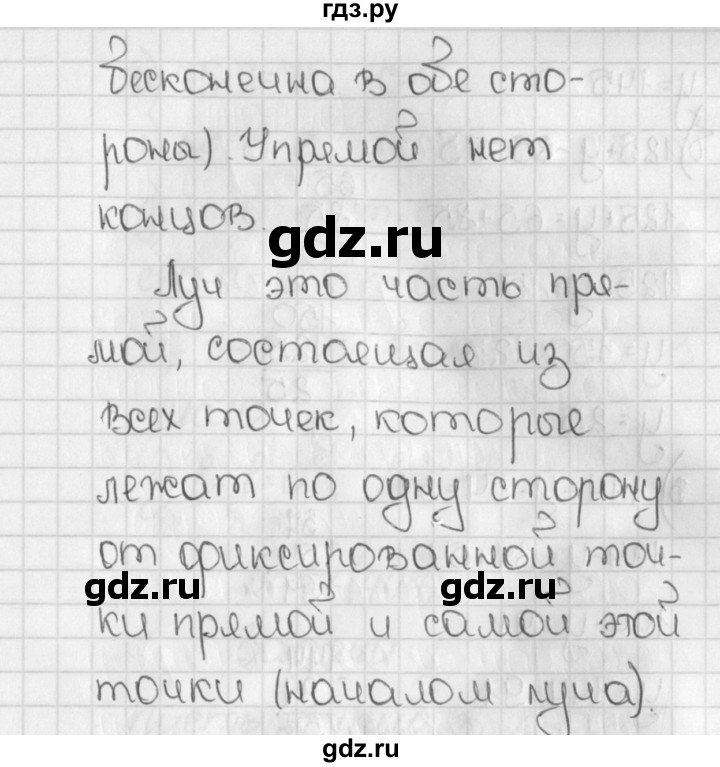 гдз.ру
бесконечна в обе сто-
роны). У прямой нет
концов.
gdz.ru
Луч это часть пря-
мой, состоящая из
всех точек, которые
лежат по одну сторону
от фиксированной точ-
gdz.ru gdz.ru
ки прямой и самой этой
точки (началом луча).
gdz.ru